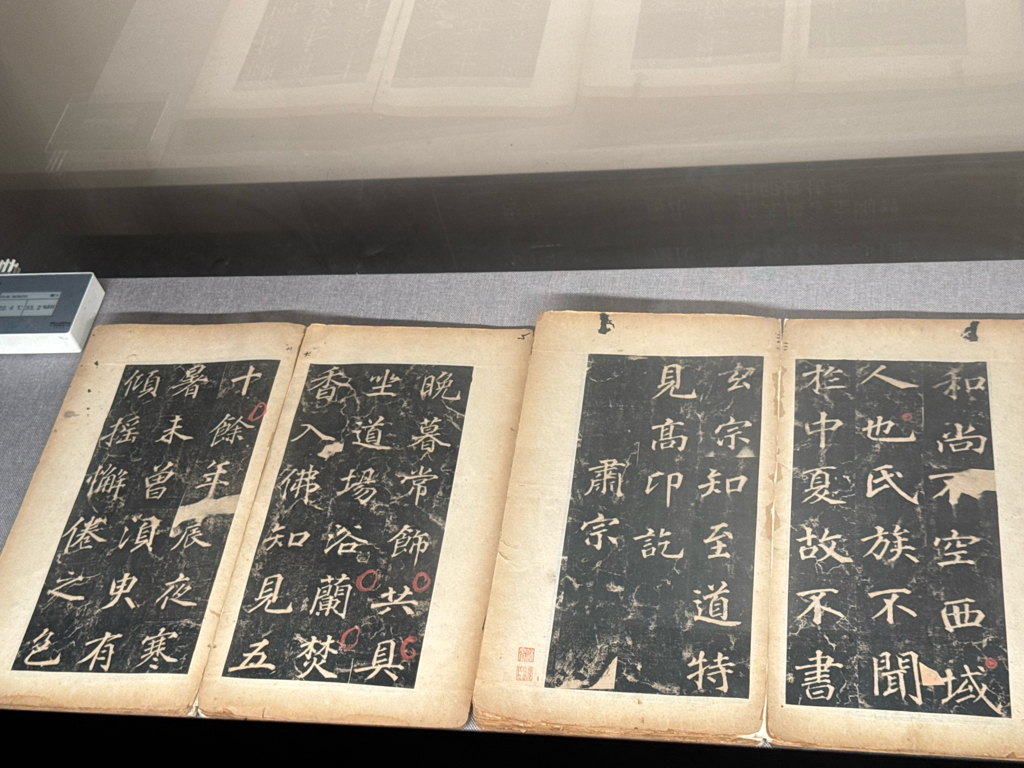 和尚不空西域
人也氏族不聞
扵中夏故不書
玄宗知至道特
見髙卬訖
肅宗
晚暮常飾共具
坐道場浴蘭焚
香入佛知見五
十餘年晨夜寒
暑未曾湏臾有
傾摇懈倦之色